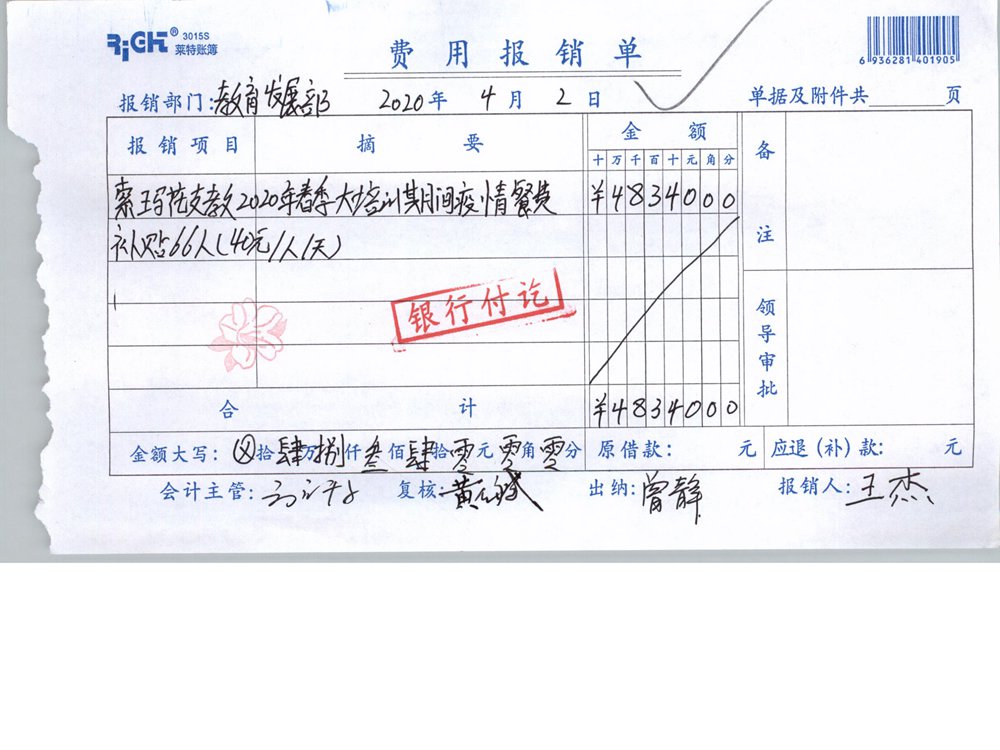 RiGHT® 3015S
莱特账簿
费用报销单
6 936281 401905
报销部门:教育发展部 2020年 4月 2日 单据及附件共 页
报销项目 摘要 金额 备注
十万千百十元角分
索玛花支教2020年春季大培训期间疫情餐费 ¥4834000
补贴66人(40元/人/天)
银行付讫
领导审批
合计 ¥4834000
金额大写: ⊗拾肆万捌仟叁佰肆拾零元零角零分 原借款: 元 应退(补)款: 元
会计主管: 复核:黄 出纳:曾静 报销人:王杰